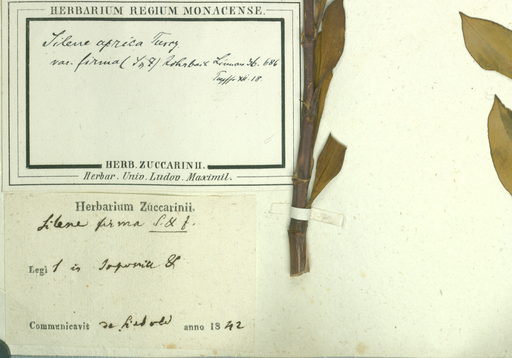 HERBARIUM REGIUM MONACENSE.
Silene aprica Turcz
var. firma (S & Z) Rohrbach Linnaea 36. 686
HERB. ZUCCARINII.
Herbar. Univ. Ludov. Maximil.
Herbarium Zuccarinii.
Silene firma S. & f.
Legi
Communicavit de Siebold anno 1842